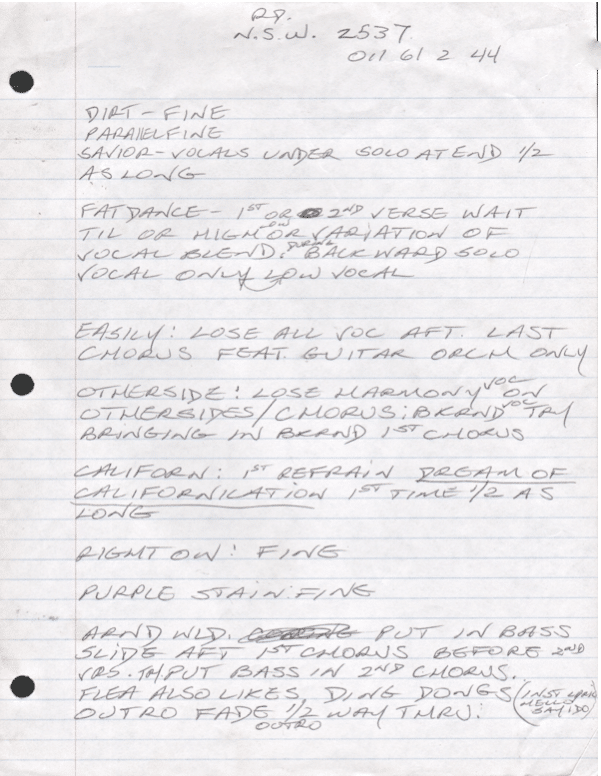 RD.
N.S.W. 2537
011 61 2 44
DIRT - FINE
PARALLEL FINE
SAVIOR - VOCALS UNDER SOLO AT END 1/2
AS LONG
FATDANCE - 1ST OR 2ND VERSE WAIT
TIL OR HIGH OR LOW VARIATION OF
VOCAL BLEND. DURING BACKWARD SOLO
VOCAL ONLY LOW VOCAL
EASILY: LOSE ALL VOC AFT. LAST
CHORUS FEAT. GUITAR ORCH ONLY
OTHERSIDE: LOSE HARMONY VOC ON
OTHERSIDES/CHORUS: BKRND VOC TRY
BRINGING IN BKRND 1ST CHORUS
CALIFORN: 1ST REFRAIN DREAM OF
CALIFORNICATION 1ST TIME 1/2 AS
LONG
RIGHT ON: FINE
PURPLE STAIN: FINE
ARND WLD. PUT IN BASS
SLIDE AFT 1ST CHORUS BEFORE 2ND
VRS. PUT BASS IN 2ND CHORUS.
FLEA ALSO LIKES DING DONGS (INST
OUTRO FADE 1/2 WAY THRU.
OUTRO